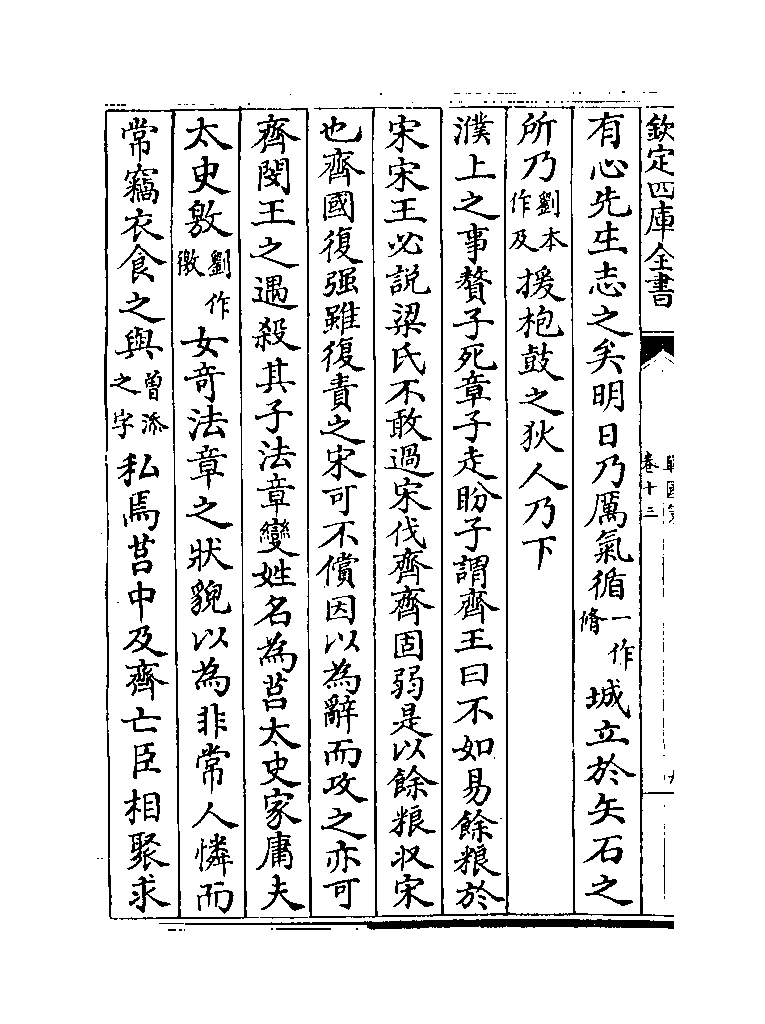 欽定四庫全書
卷十三
有心先生志之矣明日乃厲氣循一作脩城立於矢石之
所乃劉本作及援枹鼓之狄人乃下
濮上之事贅子死章子走盼子謂齊王曰不如易餘粮於
宋宋王必説梁氏不敢過宋伐齊齊固弱是以餘粮収宋
也齊國復强雖復責之宋可不償因以為辭而攻之亦可
齊閔王之遇殺其子法章變姓名為莒太史家庸夫
太史敫劉作徼女竒法章之狀貌以為非常人憐而
常竊衣食之與曾添之字私焉莒中及齊亡臣相聚求